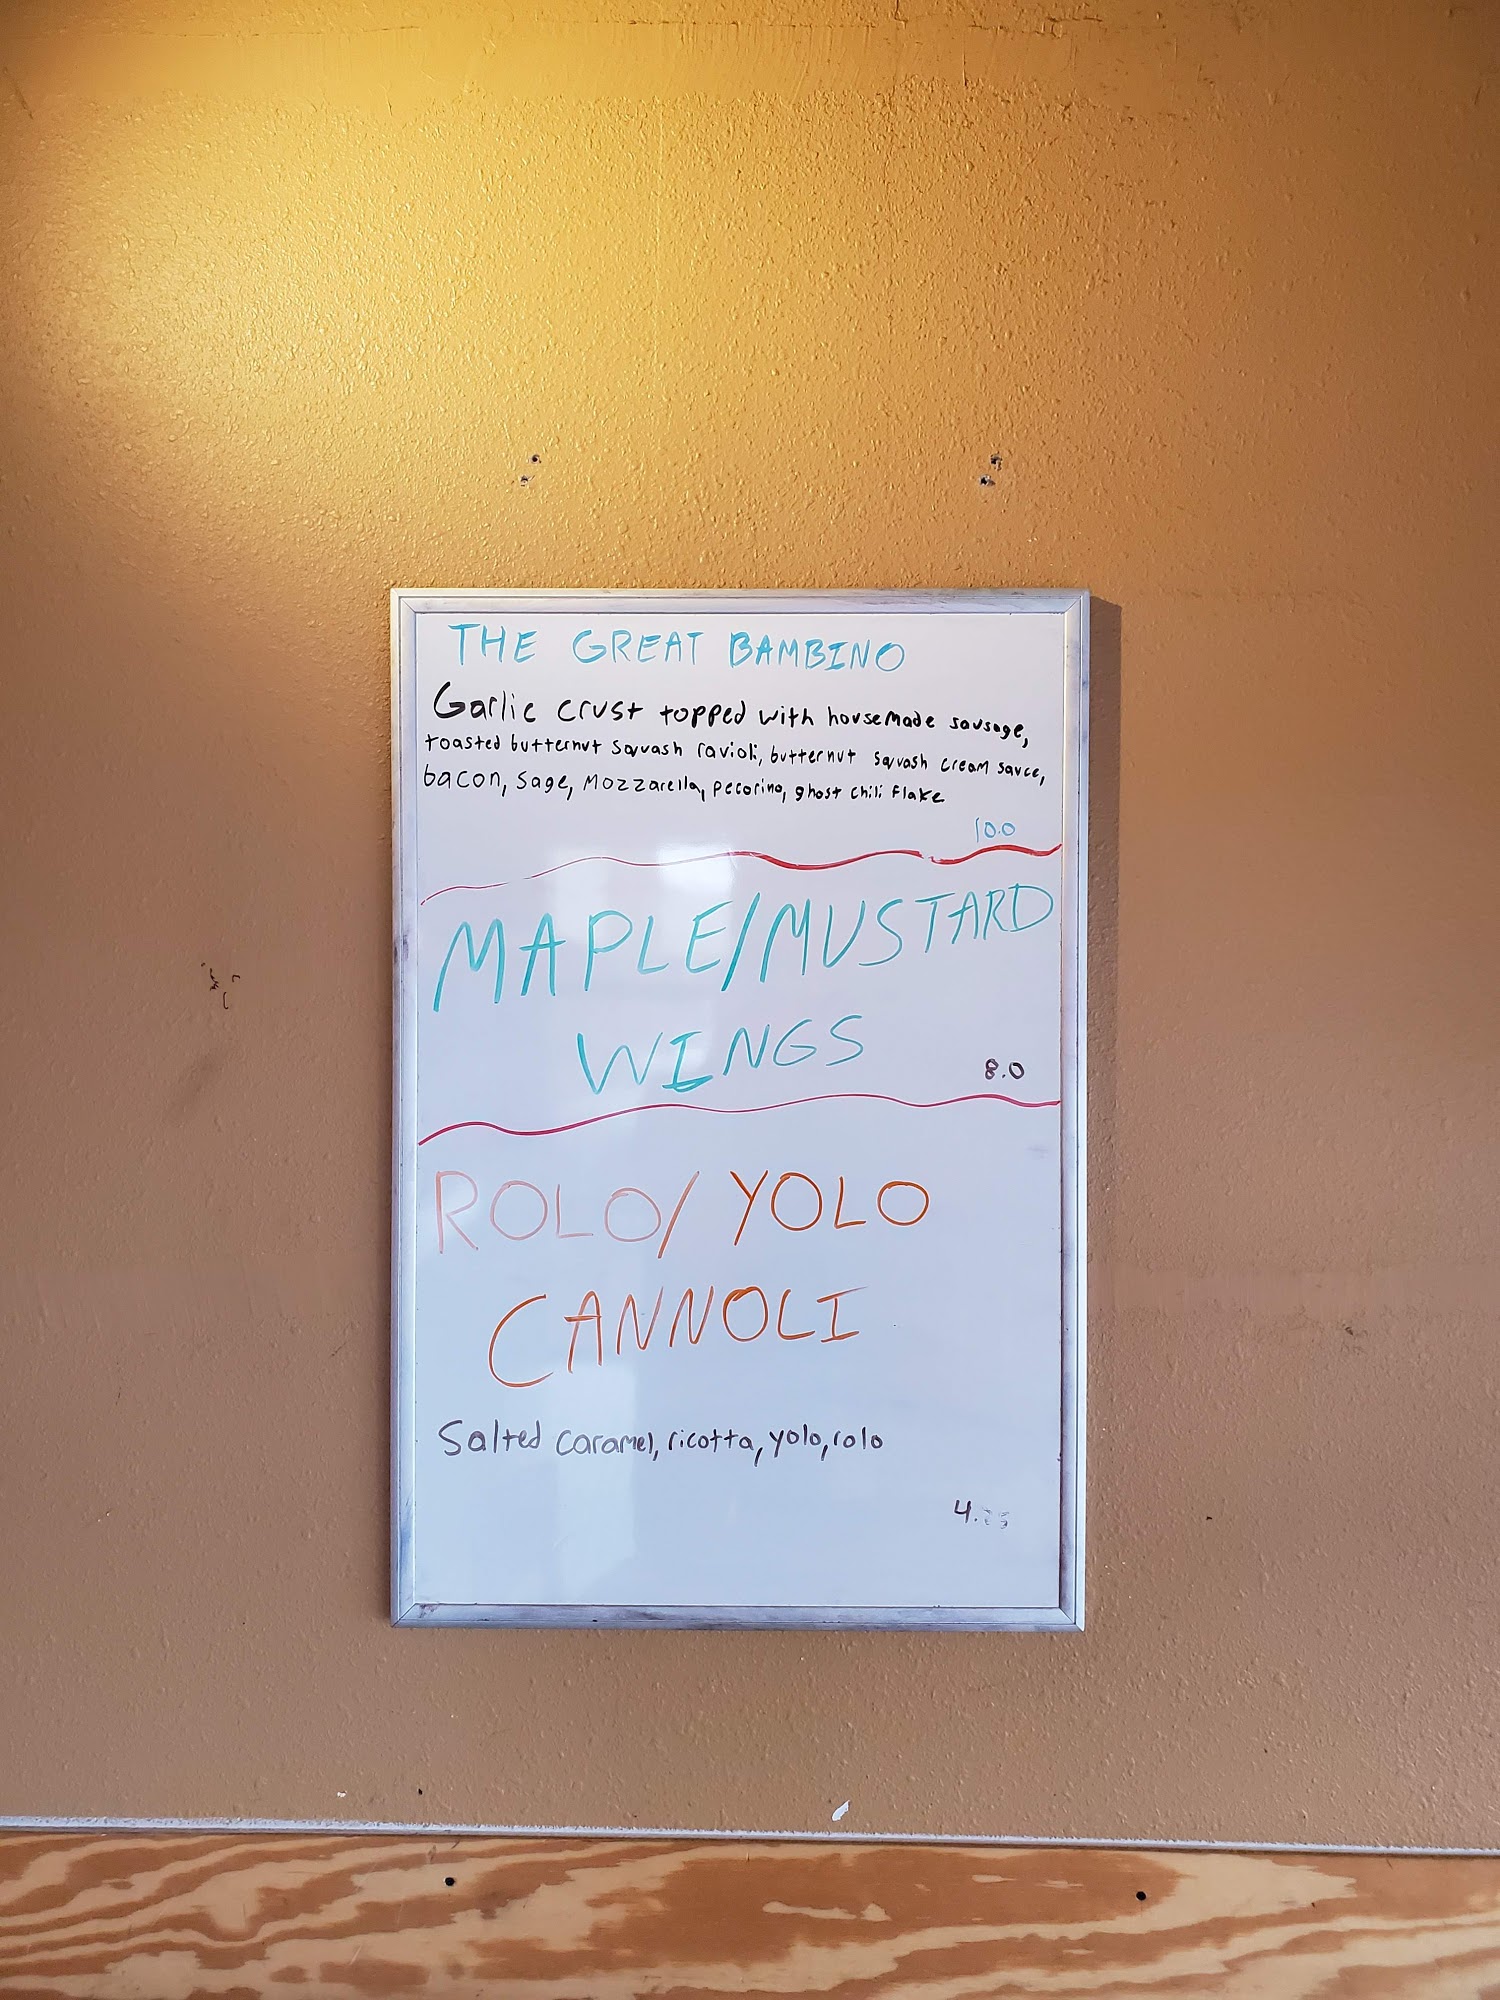 THE GREAT BAMBINO
Garlic crust topped with housemade sausage,
toasted butternut squash ravioli, butternut squash cream sauce,
bacon, sage, mozzarella, pecorino, ghost chili flake
10.0
MAPLE/MUSTARD
WINGS
8.0
ROLO/YOLO
CANNOLI
Salted caramel, ricotta, yolo, rolo
4.25